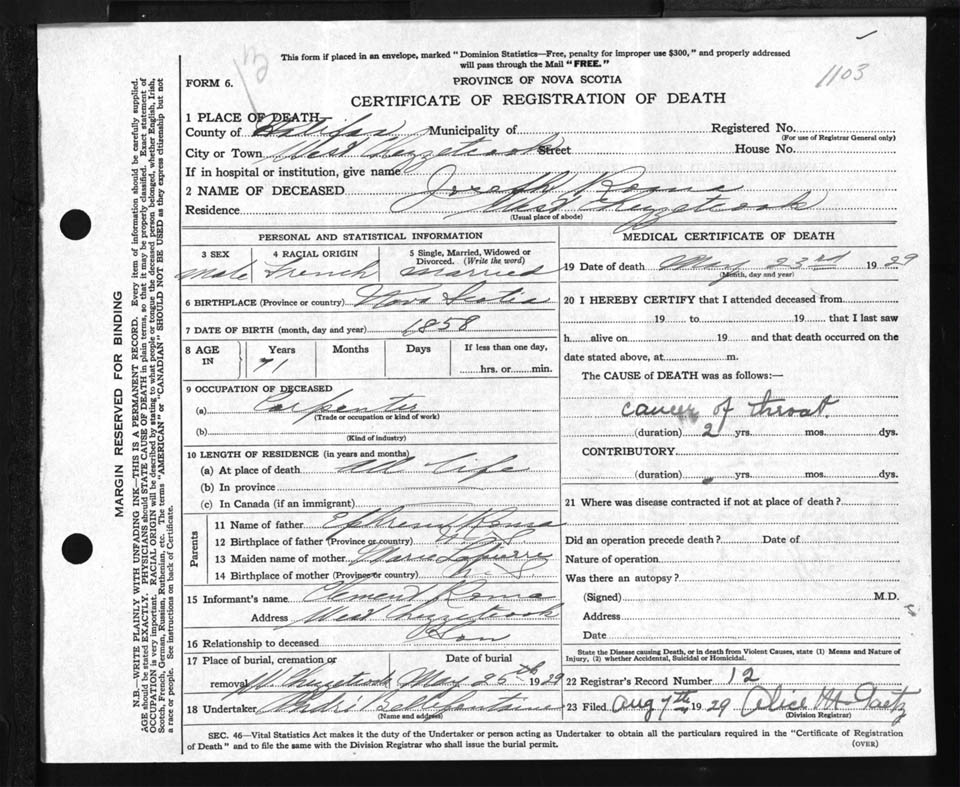 This form if placed in an envelope, marked "Dominion Statistics—Free, penalty for improper use $300," and properly addressed
will pass through the Mail "FREE."
1103
FORM 6.
PROVINCE OF NOVA SCOTIA
CERTIFICATE OF REGISTRATION OF DEATH
1 PLACE OF DEATH
County of Halifax Municipality of Registered No.
(For use of Registrar General only)
City or Town West Chezzetcook Street House No.
If in hospital or institution, give name
2 NAME OF DECEASED Joseph Roma
Residence West Chezzetcook
(Usual place of abode)
PERSONAL AND STATISTICAL INFORMATION
3 SEX 4 RACIAL ORIGIN 5 Single, Married, Widowed or
Divorced. (Write the word)
Male French Married
6 BIRTHPLACE (Province or country) Nova Scotia
7 DATE OF BIRTH (month, day and year) 1858
8 AGE IN Years Months Days If less than one day,
71 hrs. or min.
9 OCCUPATION OF DECEASED
(a) Carpenter
(Trade or occupation or kind of work)
(b)
(Kind of industry)
10 LENGTH OF RESIDENCE (in years and months)
(a) At place of death All life
(b) In province
(c) In Canada (if an immigrant)
Parents
11 Name of father Ephrem Roma
12 Birthplace of father (Province or country) N.S.
13 Maiden name of mother Marie Lapierre
14 Birthplace of mother (Province or country)
15 Informant's name Clement Roma
Address West Chezzetcook
16 Relationship to deceased Son
17 Place of burial, cremation or Date of burial
removal W. Chezzetcook May 25th 1929
18 Undertaker
(Name and address)
MEDICAL CERTIFICATE OF DEATH
19 Date of death May 23rd 1929
(Month, day and year)
20 I HEREBY CERTIFY that I attended deceased from
19 to 19 that I last saw
h alive on 19 and that death occurred on the
date stated above, at m.
The CAUSE of DEATH was as follows:—
cancer of throat.
(duration) 2 yrs. mos. dys.
CONTRIBUTORY
(duration) yrs. mos. dys.
21 Where was disease contracted if not at place of death?
Did an operation precede death? Date of
Nature of operation
Was there an autopsy?
(Signed) M.D.
Address
Date
State the Disease causing Death, or in death from Violent Causes, state (1) Means and Nature of
Injury, (2) whether Accidental, Suicidal or Homicidal.
22 Registrar's Record Number 12
23 Filed Aug 7th 1929 Alice M. Gaetz
(Division Registrar)
SEC. 46—Vital Statistics Act makes it the duty of the Undertaker or person acting as Undertaker to obtain all the particulars required in the "Certificate of Registration
of Death" and to file the same with the Division Registrar who shall issue the burial permit.
(OVER)
MARGIN RESERVED FOR BINDING
N.B.—WRITE PLAINLY WITH UNFADING INK—THIS IS A PERMANENT RECORD. Every item of information should be carefully supplied.
AGE should be stated EXACTLY. PHYSICIANS should STATE CAUSE OF DEATH in plain terms, so that it may be properly classified. Exact statement of
OCCUPATION is very important. RACIAL ORIGIN will be described by stating to what people or tongue the deceased person belonged, whether English, Irish,
Scotch, French, German, Russian, Ruthenian, etc. The terms "AMERICAN" or "CANADIAN" SHOULD NOT BE USED as they express citizenship but not
a race or people. See instructions on back of Certificate.